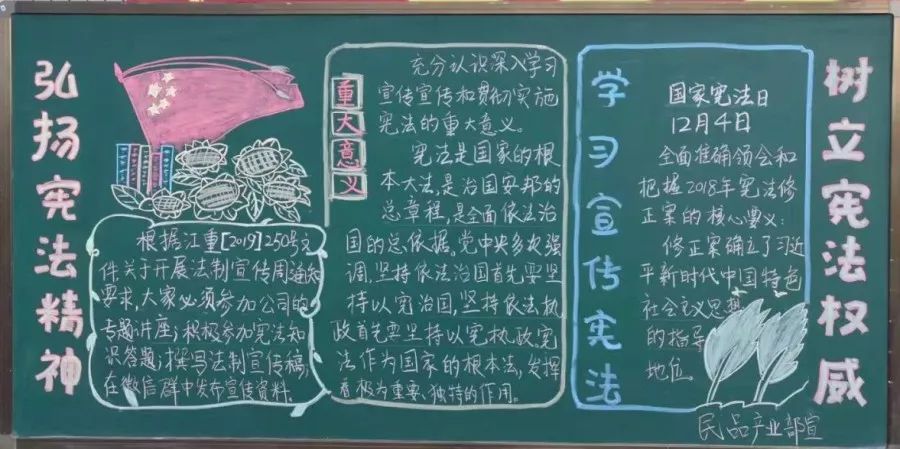 弘扬宪法精神
根据江重[2019]250号文
件关于开展法制宣传周通知
要求,大家必须参加公司的
专题讲座;积极参加宪法知
识答题;撰写法制宣传稿,
在微信群中发布宣传资料.
重大意义
充分认识深入学习
宣传宣传和贯彻实施
宪法的重大意义。
宪法是国家的根
本大法,是治国安邦的
总章程,是全面依法治
国的总依据。党中央多次强
调,坚持依法治国首先要坚
持以宪治国,坚持依法执
政首先要坚持以宪执政,宪
法作为国家的根本法,发挥
着极为重要、独特的作用。
学习宣传宪法
国家宪法日
12月4日
全面准确领会和
把握2018年宪法修
正案的核心要义:
修正案确立了习近
平新时代中国特色
社会主义思想
的指导
地位。
树立宪法权威
民品产业部宣